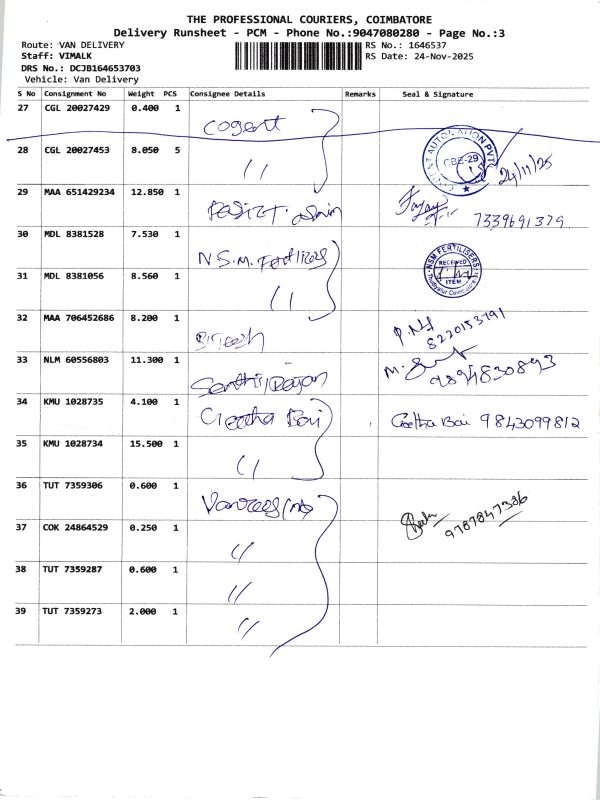 THE PROFESSIONAL COURIERS, COIMBATORE
Delivery Runsheet - PCM - Phone No.:9047080280 - Page No.:3
Route: VAN DELIVERY
Staff: VIMALK
DRS No.: DCJB164653703
Vehicle: Van Delivery
RS No.: 1646537
RS Date: 24-Nov-2025
S No Consignment No Weight PCS Consignee Details Remarks Seal & Signature
27 CGL 20027429 0.400 1 Cogent
28 CGL 20027453 8.050 5 〃 CBE-29 24/11/25
29 MAA 651429234 12.850 1 7339691379
30 MDL 8381528 7.530 1 N.S.M. Fertilizers
31 MDL 8381056 8.560 1 〃 NSM FERTILISERS RECEIVED ITEM
32 MAA 706452686 8.200 1 8220153791
33 NLM 60556803 11.300 1 9894830893
34 KMU 1028735 4.100 1 Geetha Bai Geetha Bai 9843099812
35 KMU 1028734 15.500 1 〃
36 TUT 7359306 0.600 1 9787847386
37 COK 24864529 0.250 1 〃
38 TUT 7359287 0.600 1 〃
39 TUT 7359273 2.000 1 〃